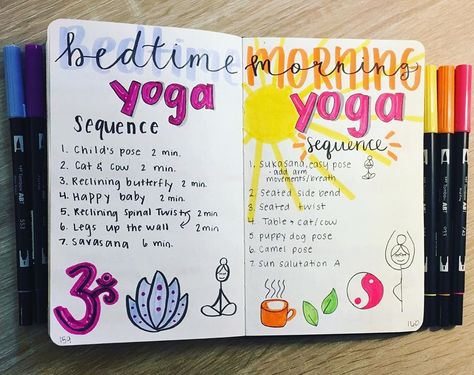 Bedtime
bedtime
yoga
Sequence
1. Child's pose 2 min.
2. Cat & Cow 2 min.
3. Reclining butterfly 2 min.
4. Happy baby 2 min.
5. Reclining Spinal Twist 2 min
6. Legs up the wall 2 min.
7. Savasana 6 min.
ॐ
159
MORNING
morning
yoga
sequence
1. Sukasana, easy pose
- add arm
movements/breath
2. Seated side bend
3. Seated twist
4. Table → cat/cow
5. puppy dog pose
6. Camel pose
7. Sun salutation A
160